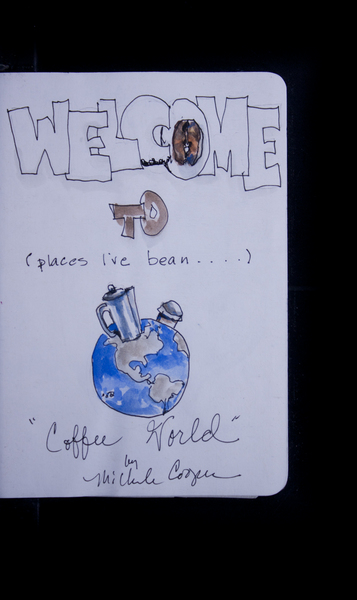 WELCOME
TO
(places I've bean.....)
"Coffee World"
by
Michele Cooper